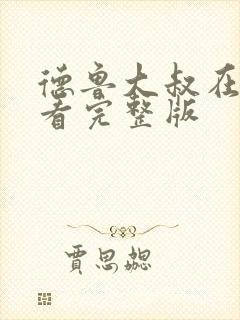 德鲁大叔在
看完整版
贾思勰